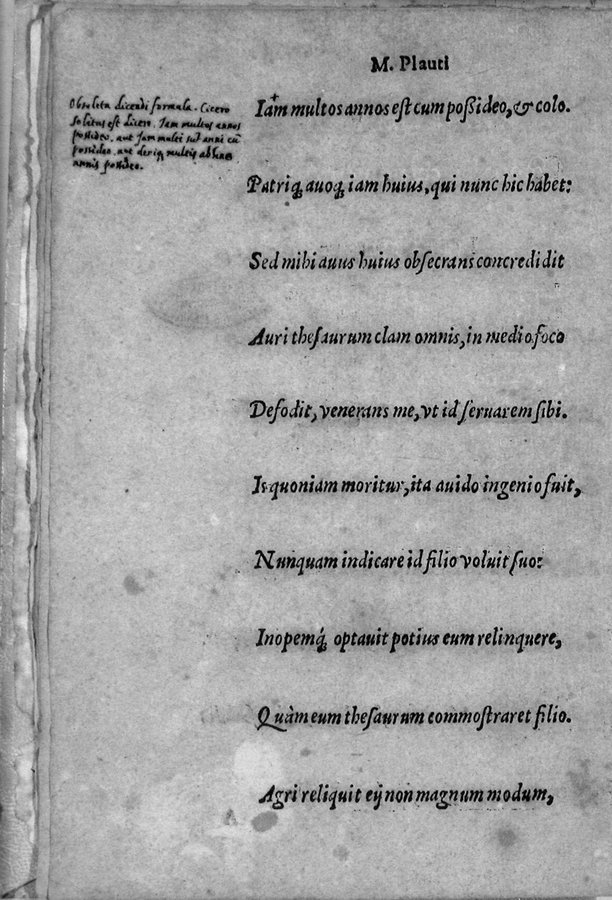 M. Plauti
Obsoleta dicendi formula. Cicero
solitus est dicere. Iam multos annos
possideo, aut Iam multi sūt anni cū
possideo. aut deniq multis ab hinc
annis possideo.
Iam multos annos est cum poſſideo, & colo.
Patriq, auoq, iam huius, qui nunc hic habet:
Sed mihi auus huius obſecrans concredidit
Auri theſaurum clam omnis, in medio foco
Defodit, venerans me, vt id ſeruarem ſibi.
Is quoniam moritur, ita auido ingenio fuit,
Nunquam indicare id filio voluit ſuo:
Inopemq́; optauit potius eum relinquere,
Quàm eum theſaurum commoſtraret filio.
Agri reliquit eij non magnum modum,